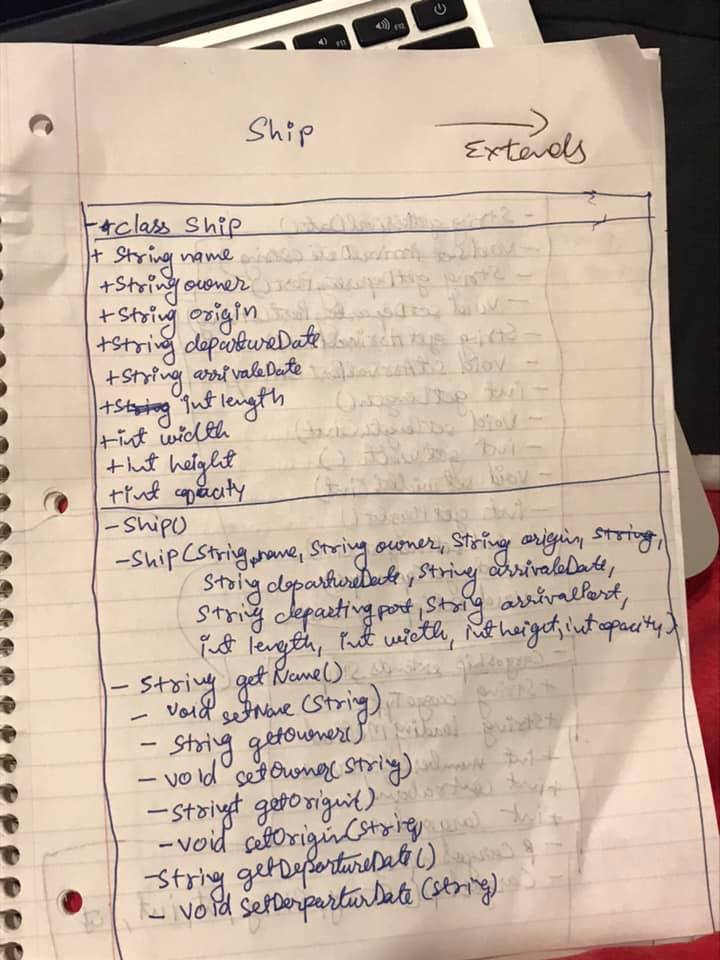 Ship
Extends
-+class Ship
+ String name
+String owner
+String origin
+String departureDate
+String arrivaleDate
+String int length
+int width
+int height
+int capacity
-Ship()
-Ship(String name, String owner, String origin, string,
String departureDate, String arrivaleDate,
String departing port, String arrivalPort,
int length, int width, int heigt, int capacity)
- String getName()
- void setName (String)
- String getOwner()
- void setOwner(String)
- String getOrigin()
- void setOrigin(String
-String getDepartureDate()
- void setDerparturDate (String)